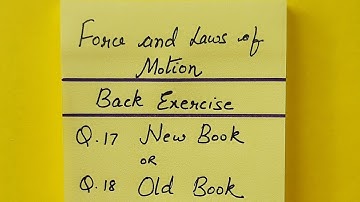 Force and Laws of
Motion
Back Exercise
Q.17 New Book
OR
Q.18 Old Book